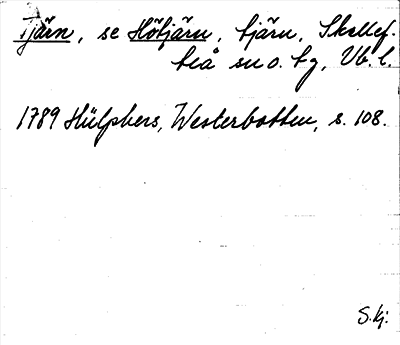 Tjärn, se Hötjärn, tjärn, Skellef-
teå sn o. tg, Vb. l.
1789 Hülphers, Westerbotten, s. 108.
S. kj.